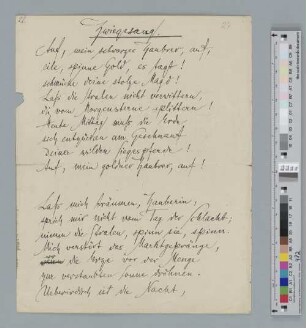 Zwiegesang.
Auf, mein schwarzer Zaubrer, auf,
eile, spinne Gold, es tagt!
schmücke deine stolze Magd!
Laß die Stralen nicht verwittern,
die vom Morgensterne splittern!
Heute Mittag muß die Erde
sich entzücken am Geschmeid
Deiner wilden
Auf, mein goldner Zaubrer, auf!
Laß mich träumen, Zauberin,
sprich mir nicht vom Tag der Schlacht;
nimm die Stralen, spinn sie, spinn.
Mich verstört das Marktgepränge,
die Erze vor der Menge
zur verstaubten Sonne dröhnen.
Ueberirdisch ist die Nacht,